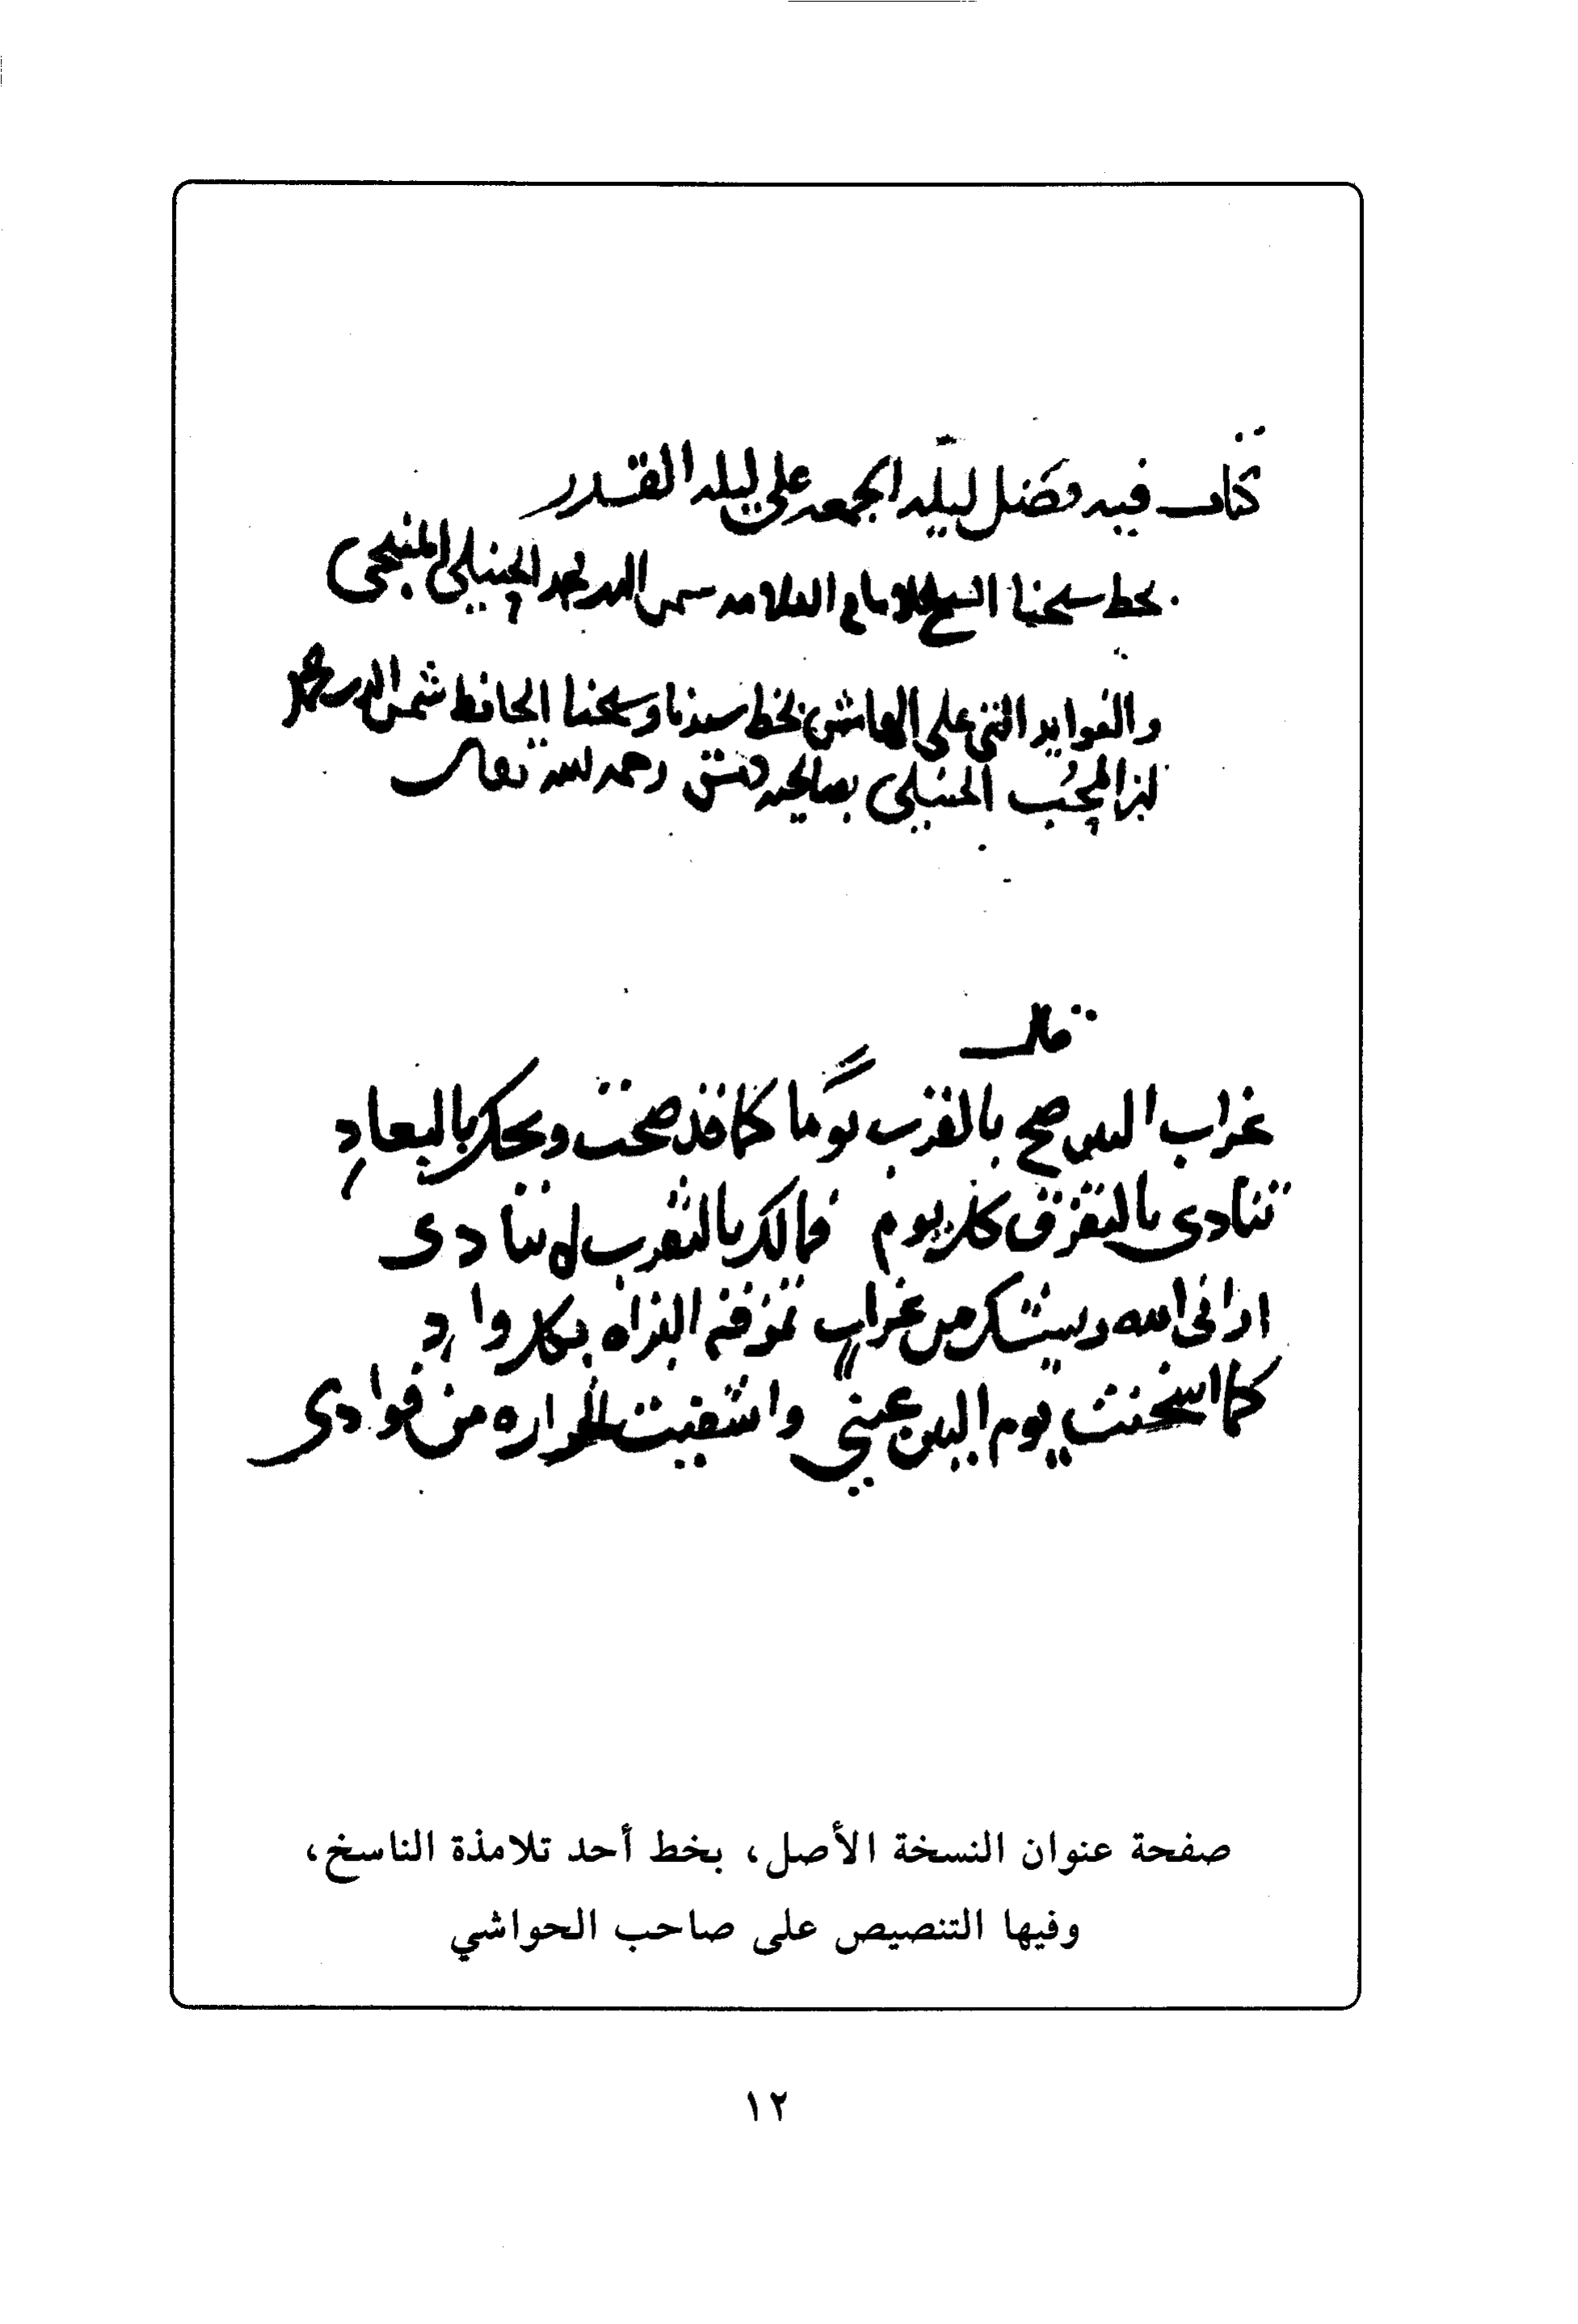 كتاب فيه فضل ليلة الجمعه على ليله القدر
بخط شيخنا الشيخ الامام العلامه شمس الدين محمد الحنبلي المنبجي
والفوايد التي على الهامش بخط سيدنا وشيخنا الحافظ شمس الدين محمد
ابن المحب الحنبلي بصالحيه دمشق رحمه الله تعالى
قال
غراب البين صح بالقرب يومًا كما قد صحت ويحك بالبعادِ
تنادى بالتفرق كل يوم فمالك بالتقرب لا تنادى
ارانى الله ريشك من غرابٍ تمزقه البزاه بكل وادِ
كما اسخنت يوم البين عيني واشفيت الحراره من فوادى
صفحة عنوان النسخة الأصل، بخط أحد تلامذة الناسخ،
وفيها التنصيص على صاحب الحواشي
١٢